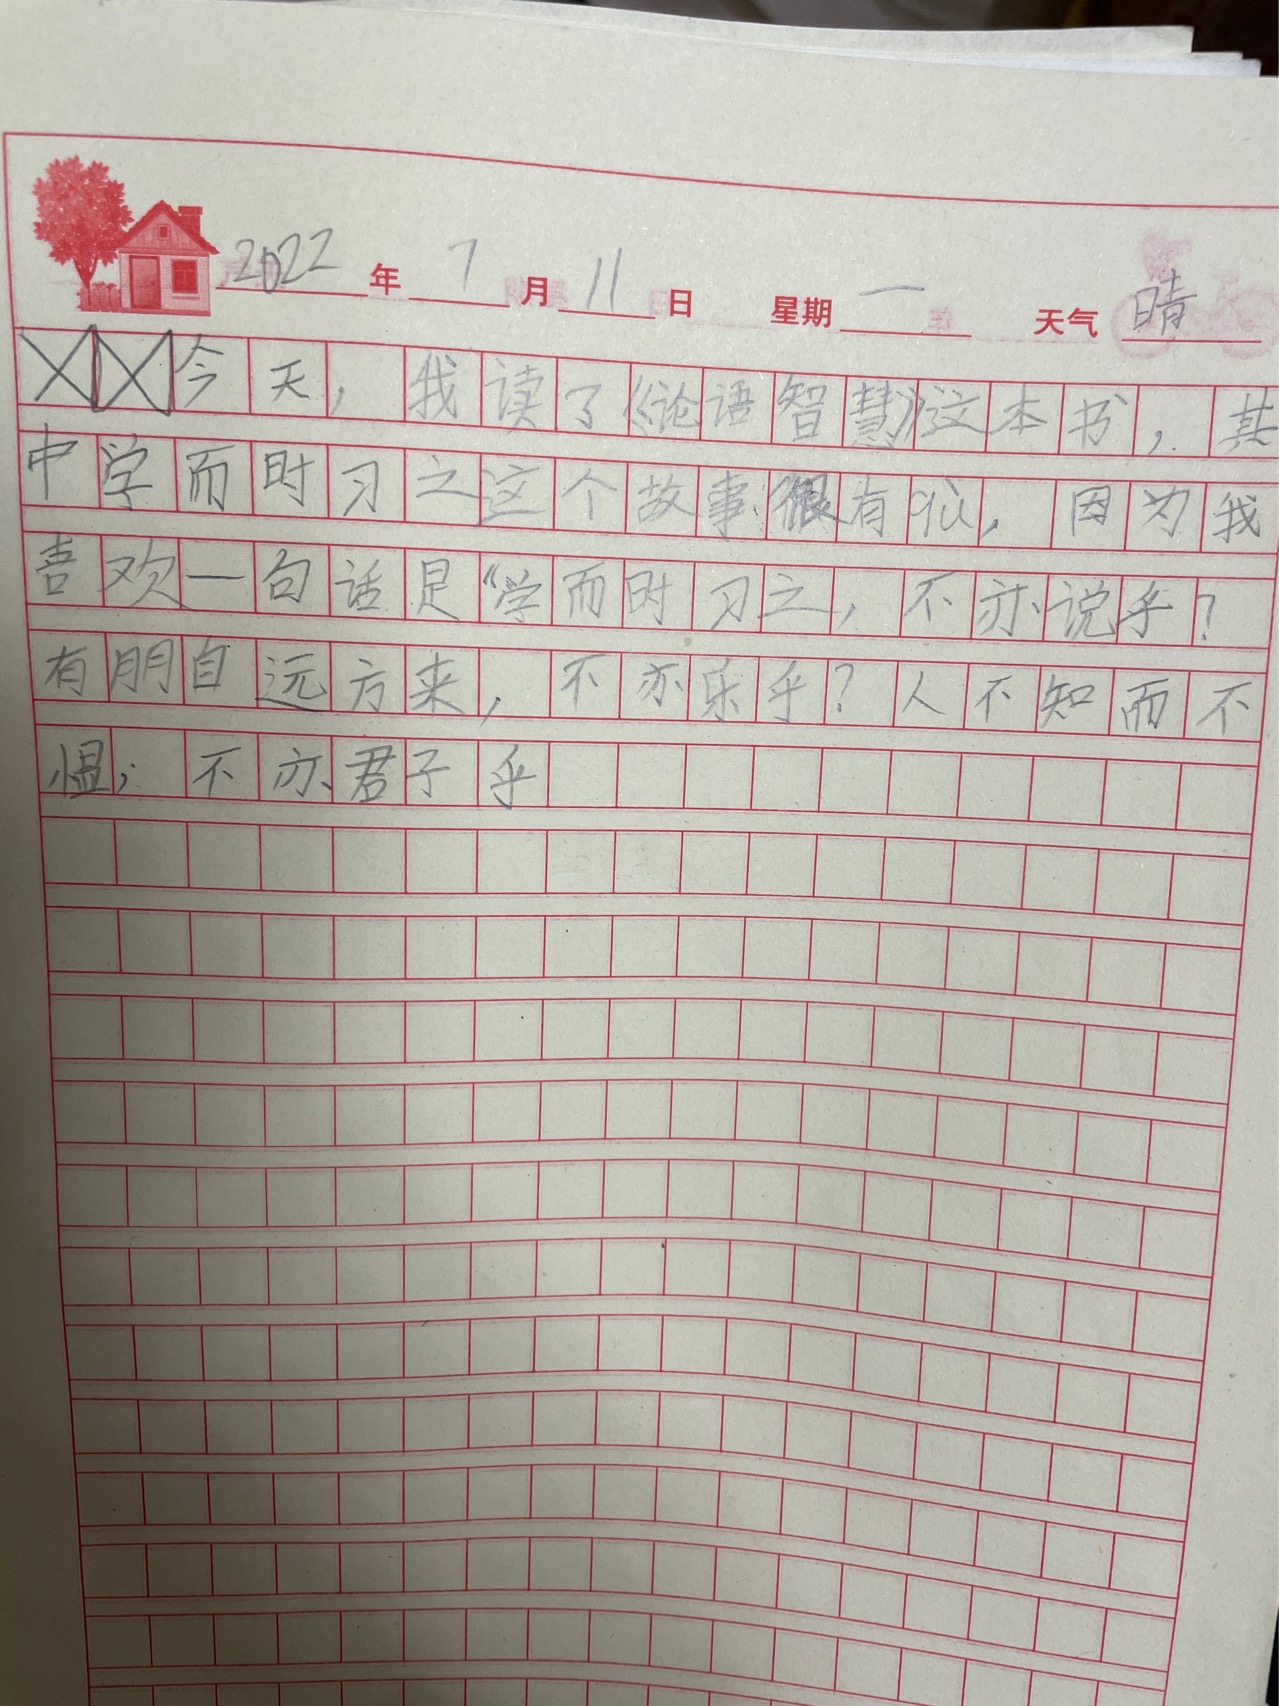 2022年7月11日 星期一 天气晴
今天，我读了《论语智慧》这本书，其
中学而时习之这个故事很有qiu，因为我
喜欢一句话是“学而时习之，不亦说乎？
有朋自远方来，不亦乐乎？人不知而不
愠，不亦君子乎